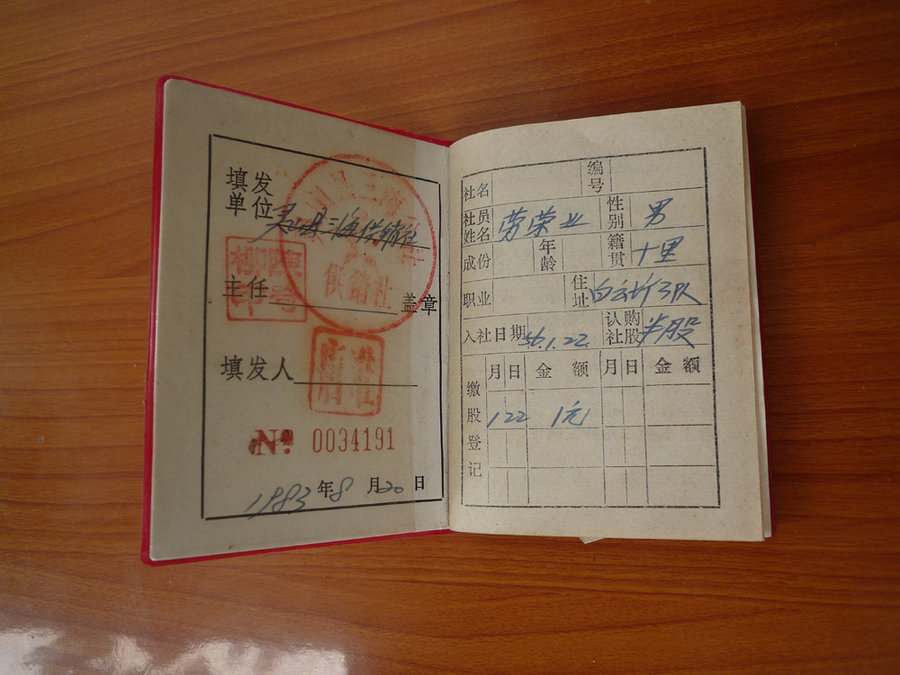 填发
单位 灵山县三海供销社
供銷社
主任 盖章
填发人
№ 0034191
1983年8月20日
社名 编号
社员姓名 劳荣业 性别 男
成份 年龄 籍贯 十里
职业 住址
入社日期 56.1.22. 认购社股 半股
缴股登记 月 日 金额 月 日 金额
1 22 1元